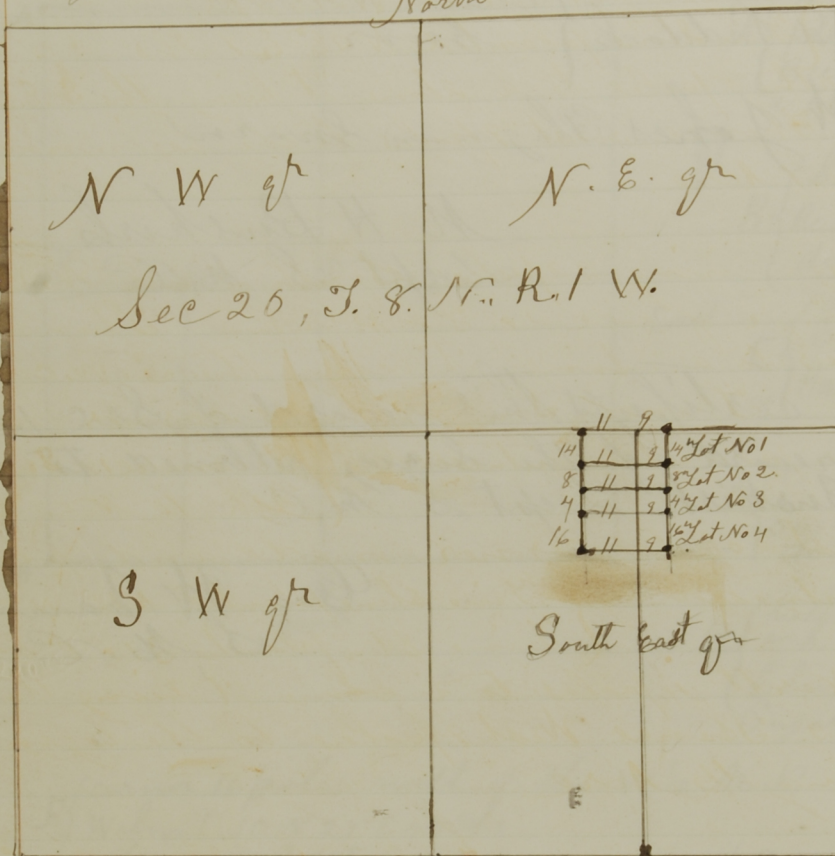 North
N W qr
N. E. qr
Sec 20, T. 8. N., R. 1 W.
11 9
14 11 9 14 Lot No 1
8 11 9 8 Lot No 2
4 11 9 4 Lot No 3
16 11 9 16 Lot No 4
S W qr
South East qr
E